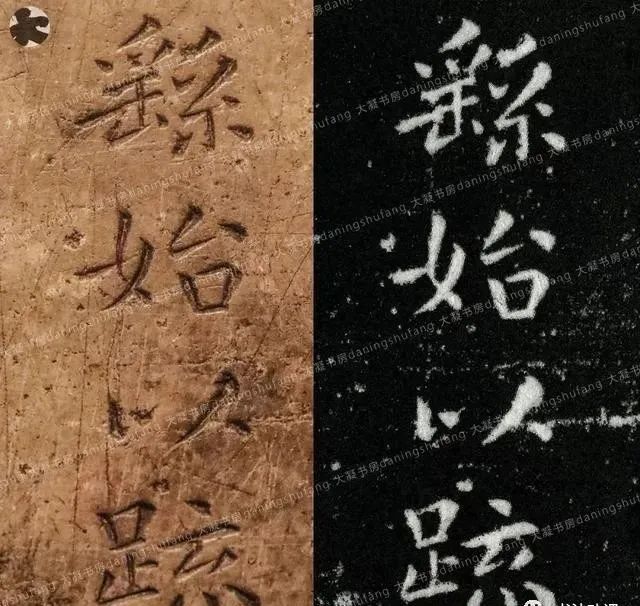 繇始以
繇始以
大凝书房daningshufang